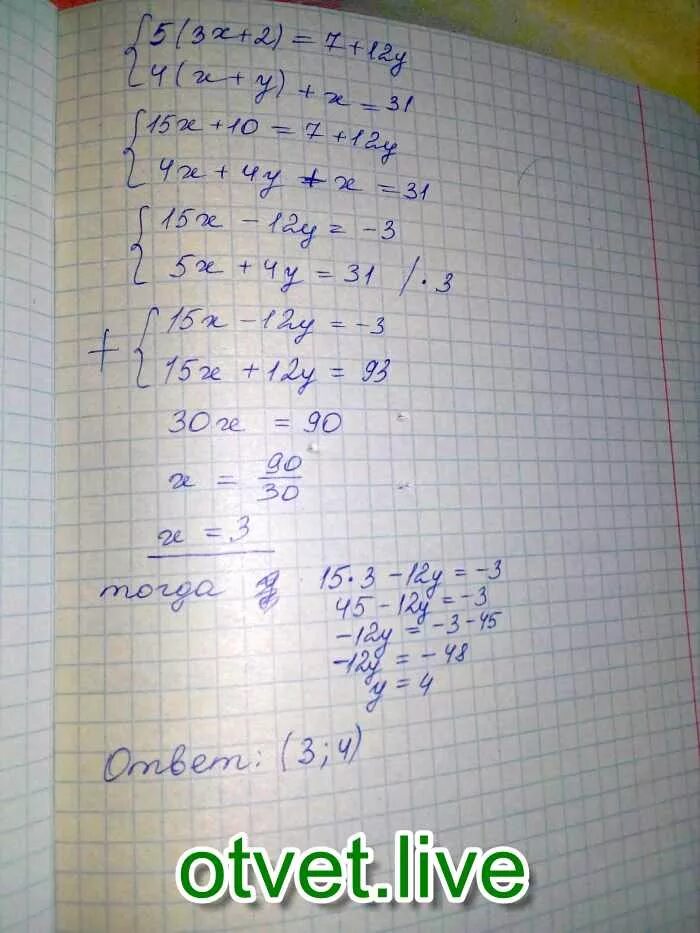 5(3x+2) = 7+12y
4(x+y) + x = 31
15x+10 = 7+12y
4x+4y + x = 31
15x - 12y = -3
5x + 4y = 31 / · 3
+ 15x - 12y = -3
15x + 12y = 93
30x = 90
x = 90/30
x = 3
тогда 15·3 - 12y = -3
45 - 12y = -3
-12y = -3-45
-12y = -48
y = 4
Ответ: (3;4)
otvet.live